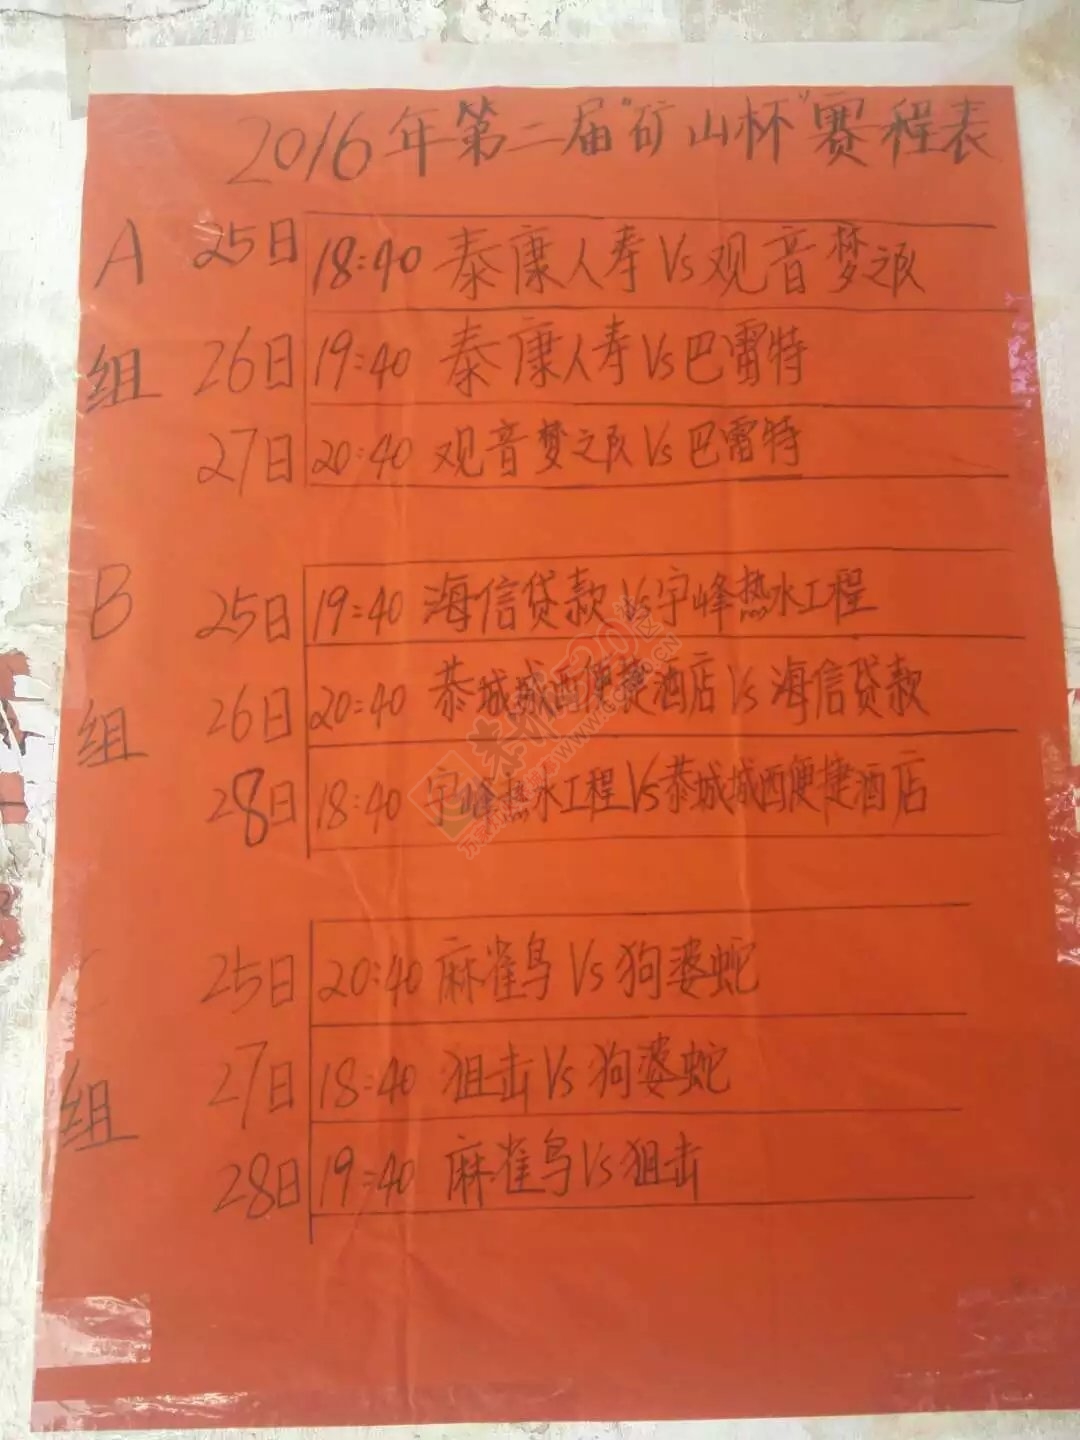 2016年第二届"矿山杯"赛程表
A组
25日 18:40 泰康人寿Vs观音梦之队
26日 19:40 泰康人寿Vs巴雷特
27日 20:40 观音梦之队Vs巴雷特
B组
25日 19:40 海信贷款Vs宇峰热水工程
26日 20:40 恭城城西便捷酒店Vs海信贷款
28日 18:40 宇峰热水工程Vs恭城城西便捷酒店
C组
25日 20:40 麻雀鸟Vs狗婆蛇
27日 18:40 狙击Vs狗婆蛇
28日 19:40 麻雀鸟Vs狙击